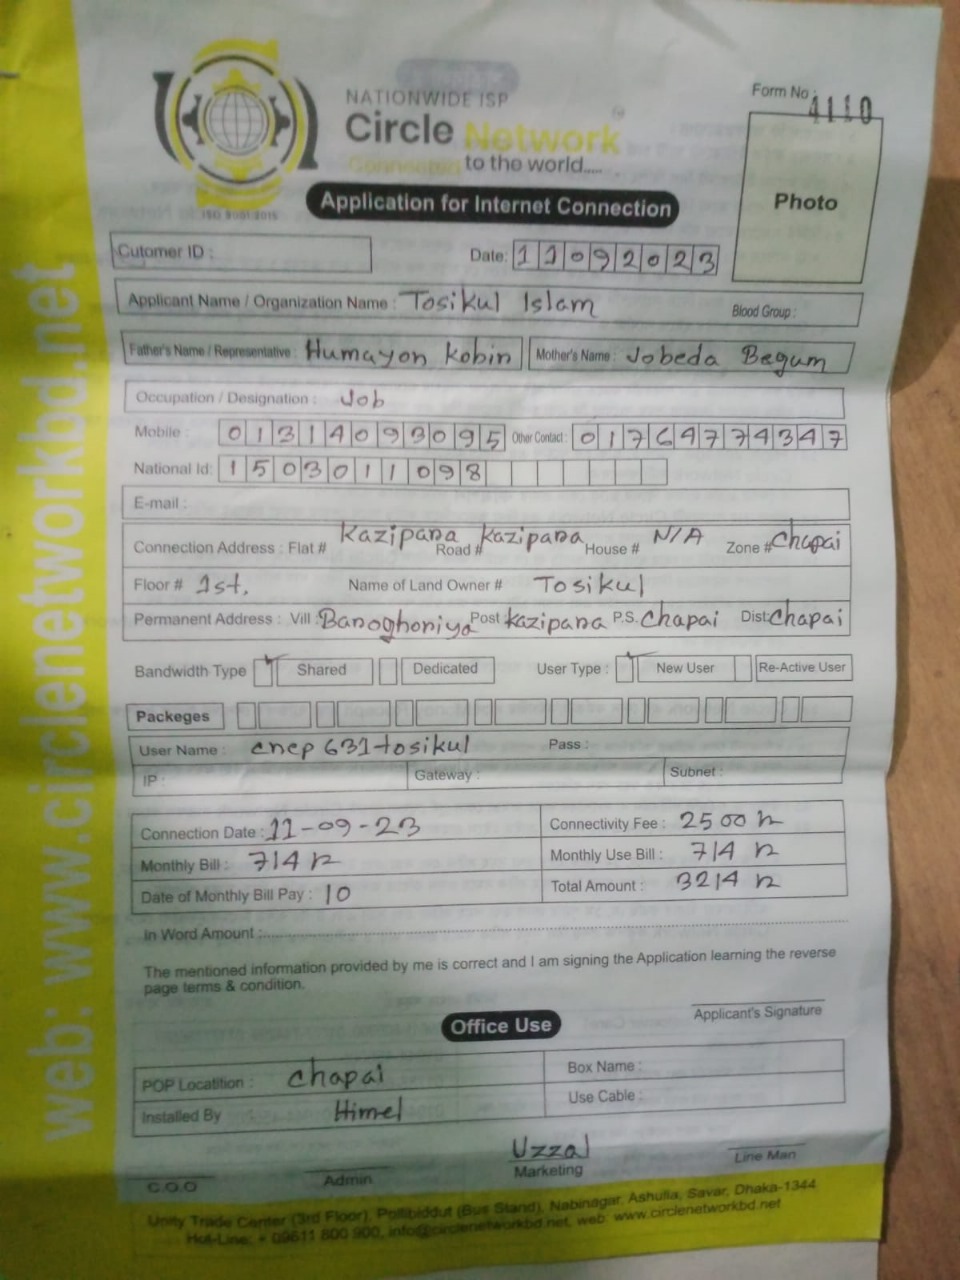 NATIONWIDE ISP
Circle Network
Connected to the world.....
ISO 9001:2015
Form No : 4110
Photo
Application for Internet Connection
Cutomer ID :
Date: 11092023
Applicant Name / Organization Name : Tosikul Islam Blood Group :
Father's Name / Representative : Humayon Kobin Mother's Name : Jobeda Begum
Occupation / Designation : Job
Mobile : 01314093095 Other Contact : 01764774347
National Id: 1503011098
E-mail :
Connection Address : Flat # Kazipana Road # Kazipana House # N/A Zone # Chapai
Floor # 1st, Name of Land Owner # Tosikul
Permanent Address : Vill : Banoghoniya Post Kazipana P.S. Chapai Dist: Chapai
Bandwidth Type Shared Dedicated User Type : New User Re-Active User
Packeges
User Name : cnep631tosikul Pass :
IP : Gateway : Subnet :
Connection Date : 11-09-23 Connectivity Fee : 2500
Monthly Bill : 714 Monthly Use Bill : 714
Date of Monthly Bill Pay : 10 Total Amount : 3214
In Word Amount :
The mentioned information provided by me is correct and I am signing the Application learning the reverse
page terms & condition.
Applicant's Signature
Office Use
POP Locatition : Chapai Box Name :
Installed By Himel Use Cable :
C.O.O Admin Uzzal Marketing Line Man
Unity Trade Center (3rd Floor), Pollibiddut (Bus Stand), Nabinagar, Ashulia, Savar, Dhaka-1344
Hot-Line: + 09611 800 900, info@circlenetworkbd.net, web: www.circlenetworkbd.net
web: www.circlenetworkbd.net